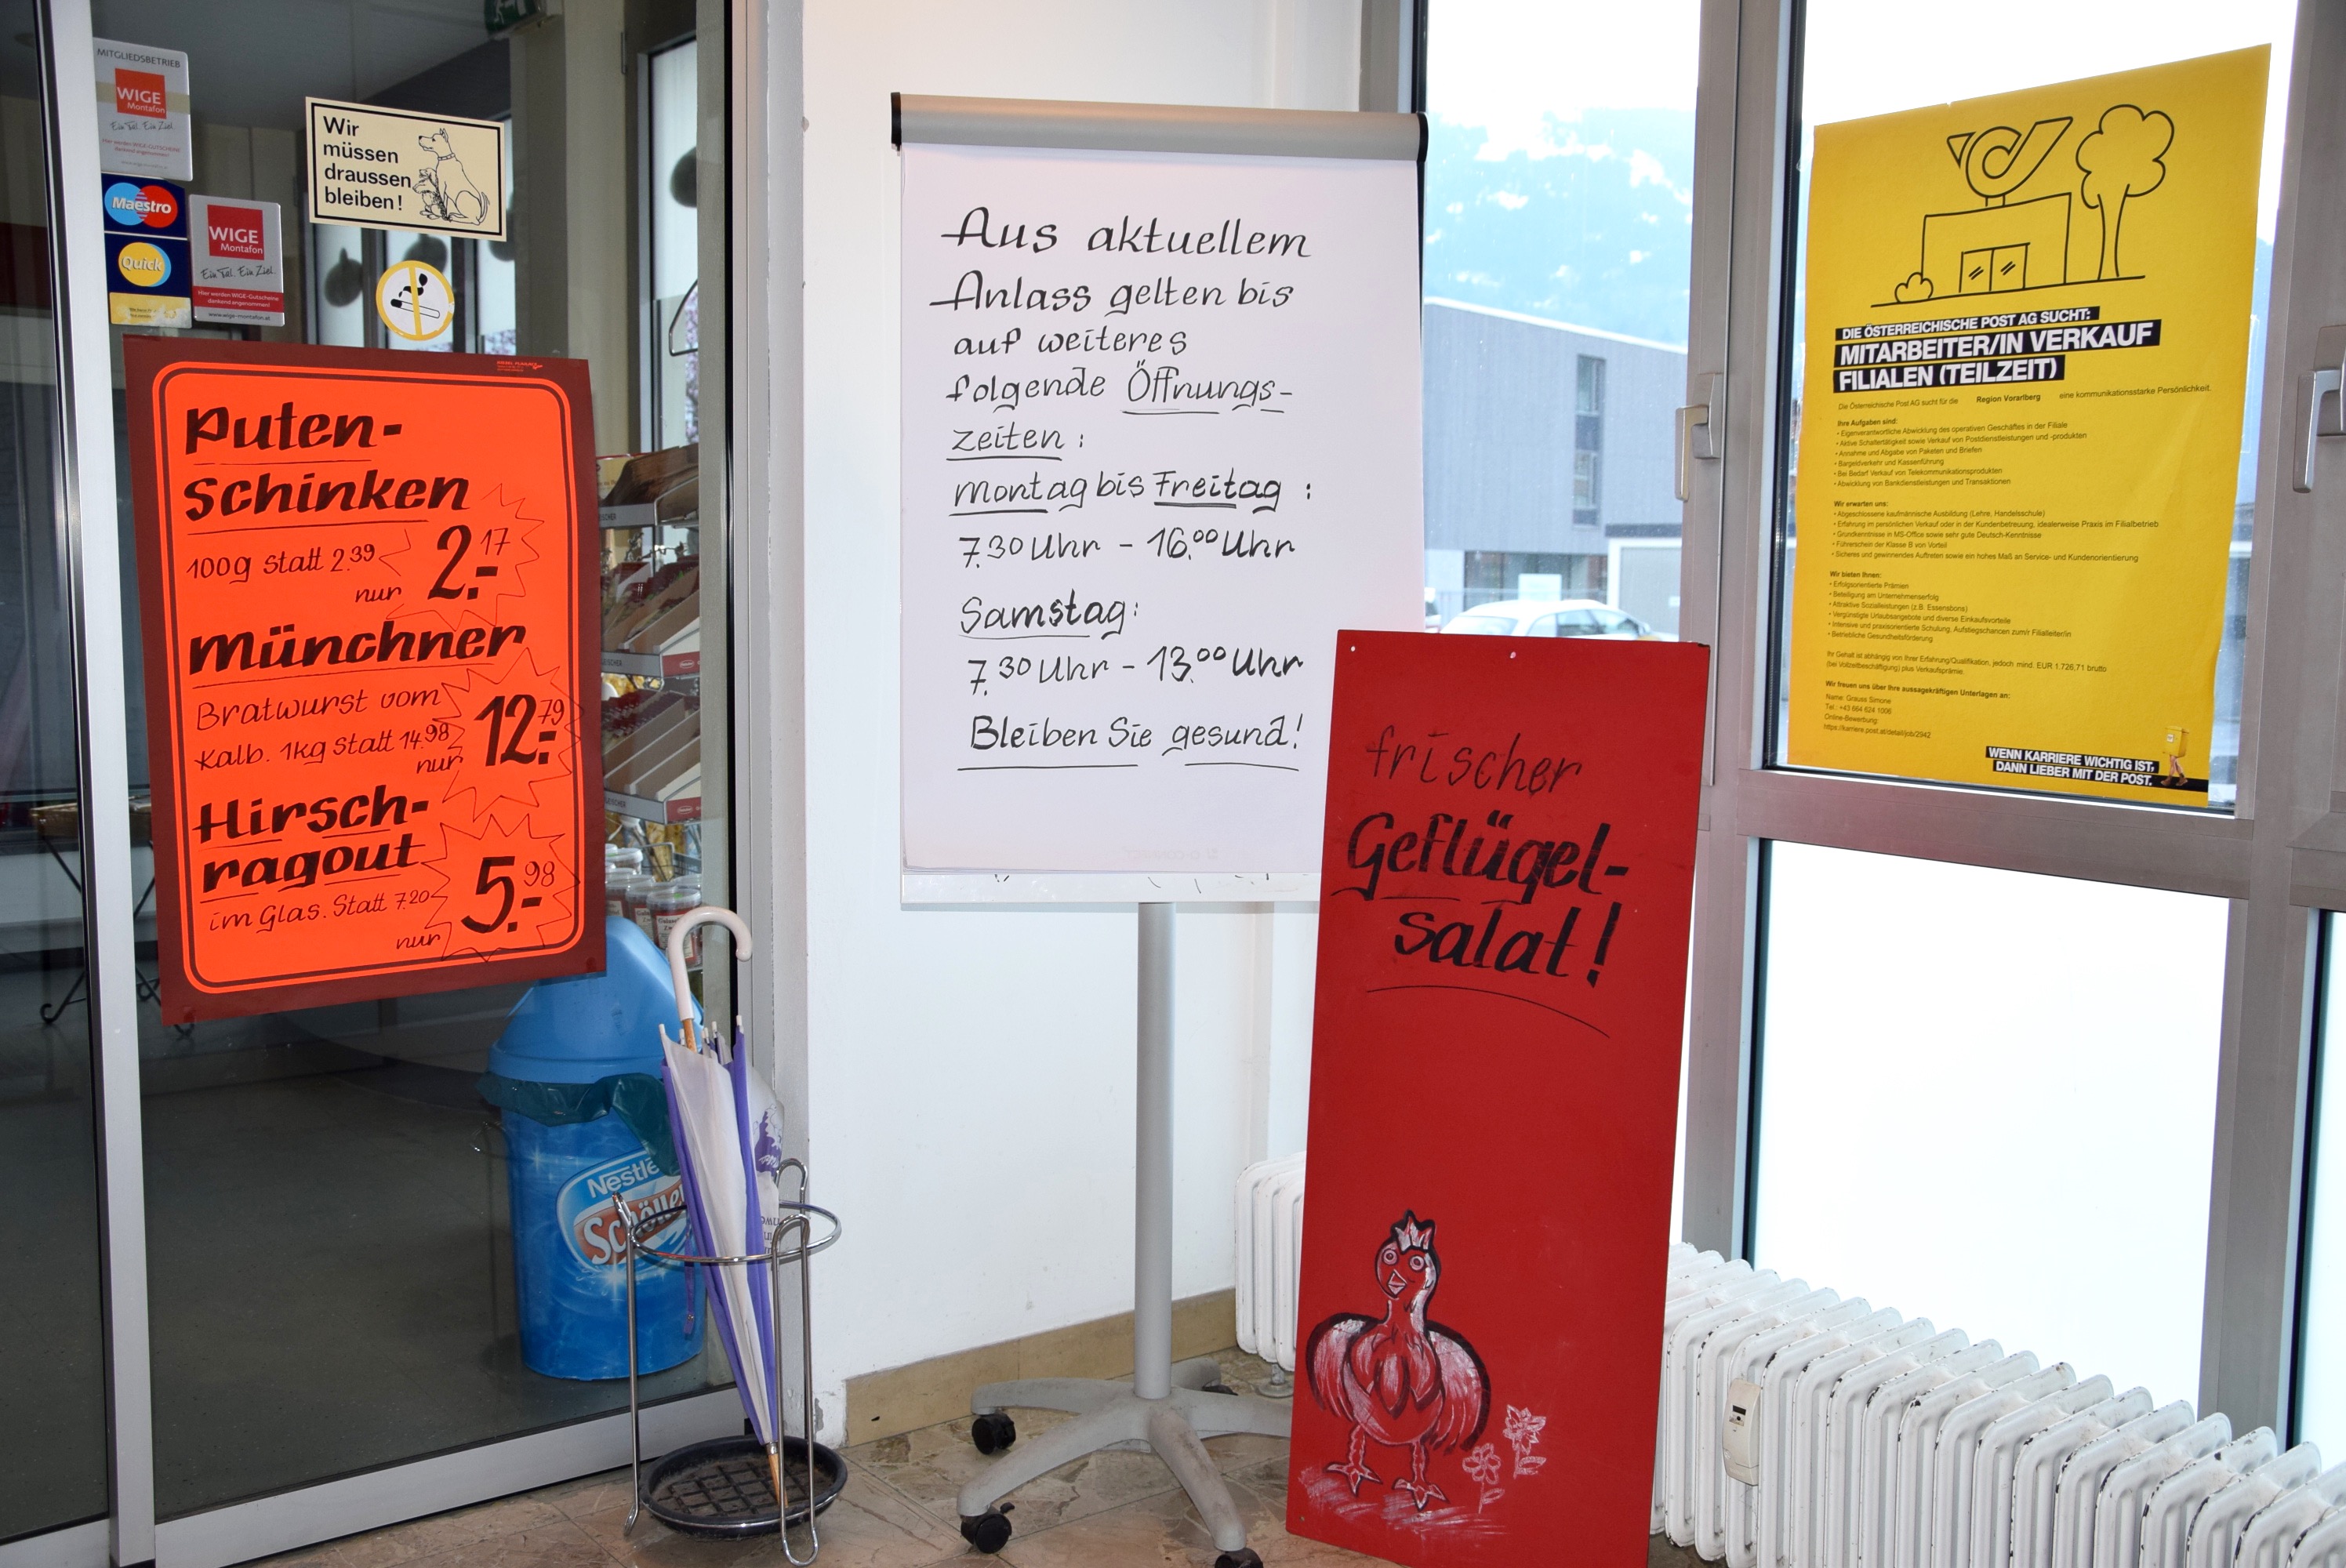 MITGLIEDSBETRIEB
WIGE
Montafon
Ein Tal. Ein Ziel.
Hier werden WIGE-GUTSCHEINE
dankend angenommen!
Maestro
Quick
WIGE
Montafon
Ein Tal. Ein Ziel.
Hier werden WIGE-Gutscheine
dankend angenommen!
www.wige-montafon.at
Wir
müssen
draussen
bleiben!
Puten-
Schinken
100g statt 2.39
nur 2.17
Münchner
Bratwurst vom
Kalb. 1kg statt 14.98
nur 12.79
Hirsch-
ragout
im Glas. Statt 7.20
nur 5.98
Nestlé
Schöller
Aus aktuellem
Anlass gelten bis
auf weiteres
folgende Öffnungs-
zeiten:
Montag bis Freitag:
7.30 Uhr - 16.00 Uhr
Samstag:
7.30 Uhr - 13.00 Uhr
Bleiben Sie gesund!
frischer
Geflügel-
salat!
DIE ÖSTERREICHISCHE POST AG SUCHT:
MITARBEITER/IN VERKAUF
FILIALEN (TEILZEIT)
Die Österreichische Post AG sucht für die Region Vorarlberg eine kommunikationsstarke Persönlichkeit.
Ihre Aufgaben sind:
• Eigenverantwortliche Abwicklung des operativen Geschäftes in der Filiale
• Aktive Schaltertätigkeit sowie Verkauf von Postdienstleistungen und -produkten
• Annahme und Abgabe von Paketen und Briefen
• Bargeldverkehr und Kassenführung
• Bei Bedarf Verkauf von Telekommunikationsprodukten
• Abwicklung von Bankdienstleistungen und Transaktionen
Wir erwarten uns:
• Abgeschlossene kaufmännische Ausbildung (Lehre, Handelsschule)
• Erfahrung im persönlichen Verkauf oder in der Kundenbetreuung, idealerweise Praxis im Filialbetrieb
• Grundkenntnisse in MS-Office sowie sehr gute Deutsch-Kenntnisse
• Führerschein der Klasse B von Vorteil
• Sicheres und gewinnendes Auftreten sowie ein hohes Maß an Service- und Kundenorientierung
Wir bieten Ihnen:
• Erfolgsorientierte Prämien
• Beteiligung am Unternehmenserfolg
• Attraktive Sozialleistungen (z.B. Essensbons)
• Vergünstigte Urlaubsangebote und diverse Einkaufsvorteile
• Intensive und praxisorientierte Schulung, Aufstiegschancen zum/r Filialleiter/in
• Betriebliche Gesundheitsförderung
Ihr Gehalt ist abhängig von Ihrer Erfahrung/Qualifikation, jedoch mind. EUR 1.726,71 brutto
(bei Vollzeitbeschäftigung) plus Verkaufsprämie.
Wir freuen uns über Ihre aussagekräftigen Unterlagen an:
Name: Grauss Simone
Tel.: +43 664 624 1006
Online-Bewerbung:
https://karriere.post.at/detail/job/2942
WENN KARRIERE WICHTIG IST,
DANN LIEBER MIT DER POST.